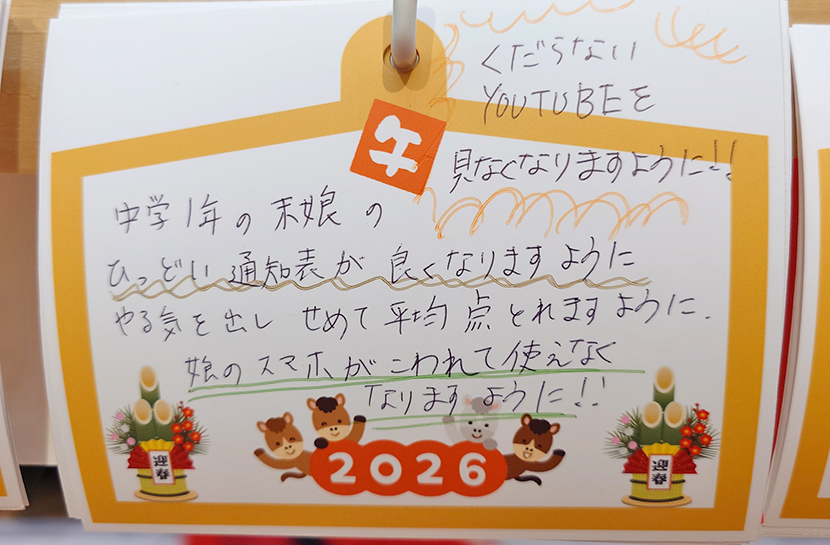 くだらない
YOUTUBEを
見なくなりますように!!
午
中学1年の末娘の
ひっどい通知表が良くなりますように
やる気を出しせめて平均点とれますように.
娘のスマホがこわれて使えなく
なりますように!!
2026
迎春
迎春